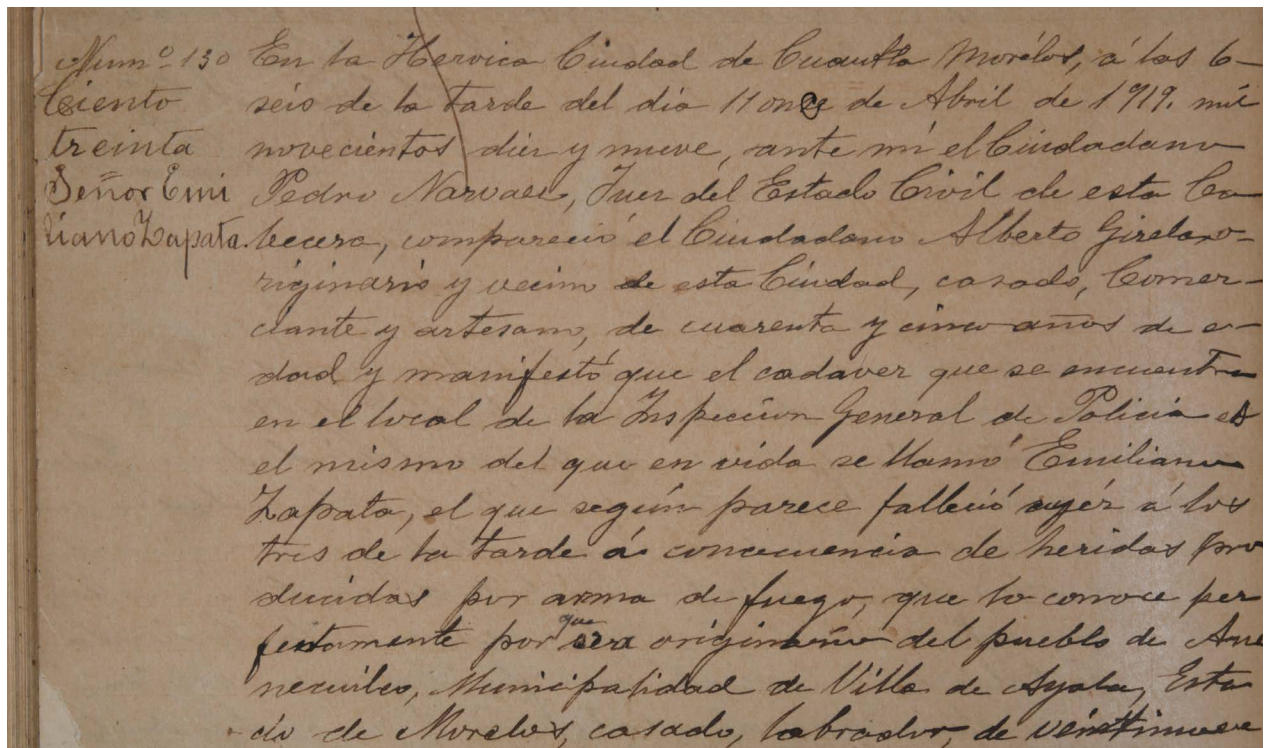 Num.º 130
Ciento
treinta
Señor Emi
liano Zapata.
En la Heroica Ciudad de Cuautla Morélos, á las 6-
seis de la tarde del dia 11 once de Abril de 1919. mil
novecientos diez y nueve, ante mi el Ciudadano
Pedro Narvaez, Juez del Estado Civil de esta Ca-
becera, compareció el Ciudadano Alberto Girelaro-
riginario y vecino de esta Ciudad, casado, Comer-
ciante y artesano, de cuarenta y cinco años de e-
dad y manifestó que el cadaver que se encuentra
en el local de la Inspección General de Policia es
el mismo del que en vida se llamó Emiliano
Zapata, el que según parece falleció ayér á las
tres de la tarde á concecuencia de heridas pro
ducidas por arma de fuego, que lo conoce per
fectamente por que era originario del pueblo de Ane
necuilco, Municipalidad de Villa de Ayala, Esta
do de Morelos, casado, labrador, de veintinueve